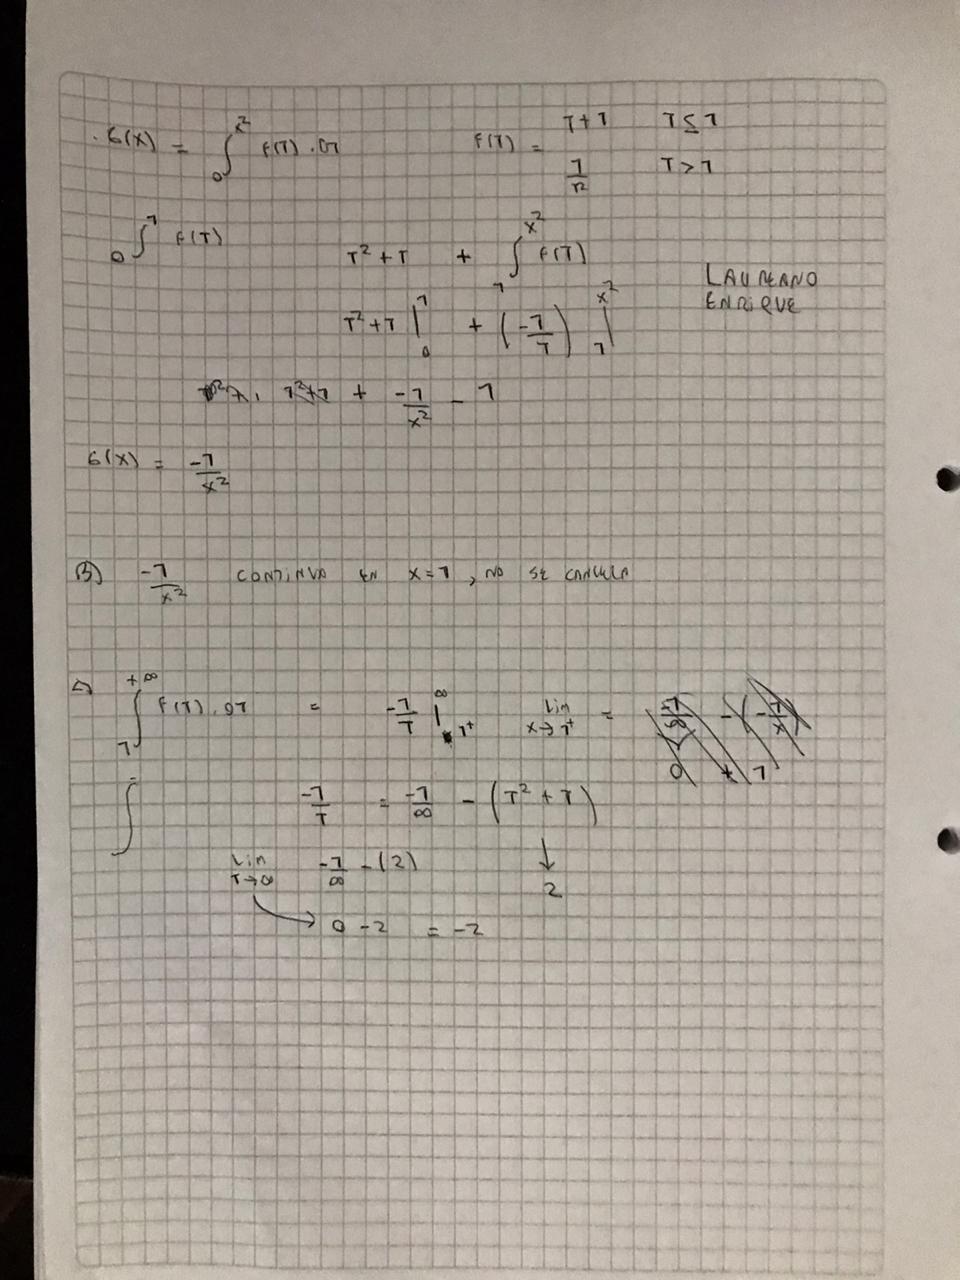 G(x) = ∫₀^{x²} F(T).DT    F(T) =    T+1    T≤1
1/T²    T>1
₀∫¹ F(T)    T²+T + ∫₁^{x²} F(T)
LAUREANO
ENRIQUE
T²+T |₀¹ + (-1/T) |₁^{x²}
1²+1 + -1/x² - 1
G(x) = -1/x²
B) -1/x² CONTINUA EN x=1, NO SE
∫₁^{+∞} F(T).DT = -1/T |_{1⁺}^{∞}    Lim x→1⁺ =    -1/∞ - (-1/x)
0 + 1
∫    -1/T = -1/∞ - (T²+T)
Lim T→∞    -1/∞ - (2)    ↓
2
→ 0 - 2 = -2